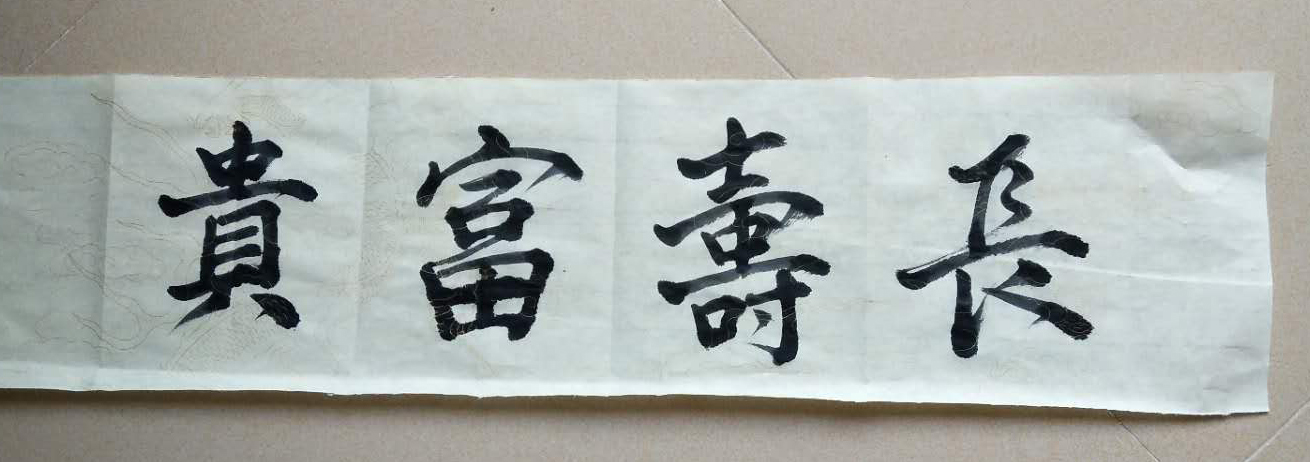 長壽富貴